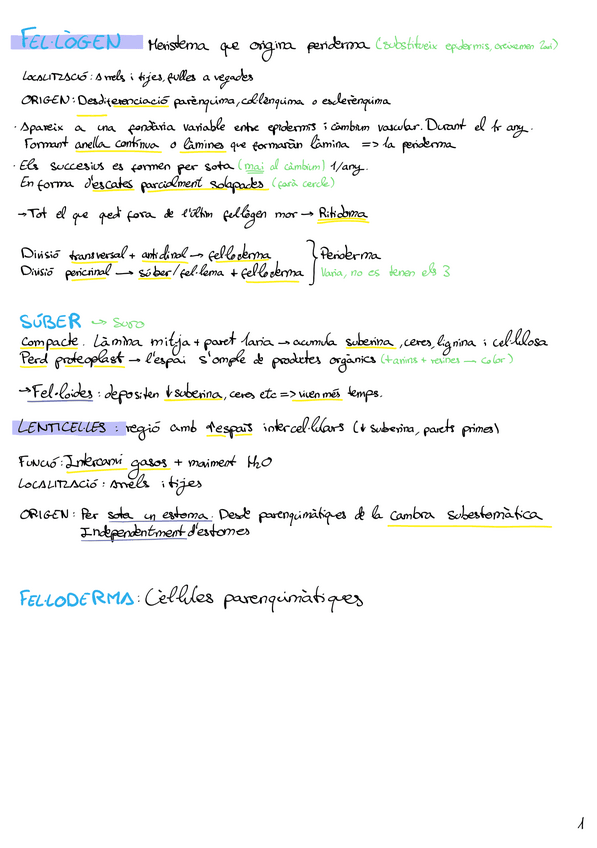 FEL·LÒGEN Meristema que origina periderma (substitueix epidermis, creixement 2ari)
LOCALITZACIÓ: Arrels i tijes, fulles a vegades
ORIGEN: Desdiferenciació parènquima, col·lènquima o esclerènquima
· Apareix a una fondària variable entre epidermis i càmbium vascular. Durant el 1r any.
Formant anella contínua o làmines que formaràn làmina => la periderma
· Els succesius es formen per sota (mai al càmbium) 1/any.
En forma d'escates parcialment solapades (farà cercle)
→ Tot el que qedi fora de l'últim fel·lògen mor → Ritidoma
Divisió transversal + anticlinal → fel·loderma
Divisió periclinal → súber/fel·lema + fel·loderma } Periderma
Varia, no es tenen els 3
SÚBER → Suro
Compacte. Làmina mitja + paret 1aria → acumula suberina, ceres, lignina i cel·lulosa
Perd protoplast → l'espai s'omple de productes orgànics (tanins + reïnes — color)
→ Fel·loides: depositen ↓ suberina, ceres etc => viuen més temps.
LENTICELLES: regió amb ↑espais intercel·lulars (↓ suberina, parets primes)
FUNCIÓ: Intercanvi gasos + moviment H2O
LOCALITZACIÓ: Arrels i tijes
ORIGEN: Per sota un estoma. Desde parenquimàtiques de la cambra subestomàtica
Independentment d'estomes
FEL·LODERMA: Cèl·lules parenquimàtiques
1